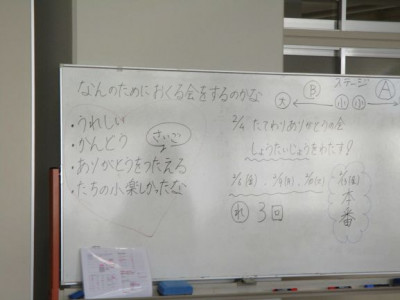 なんのためにおくる会をするのかな
・うれしい
・かんどう
さいご
・ありがとうをつたえる
・たちの小楽しかったな
ステージ
大 B 小 小 A
2/4 たてわりありがとうの会
しょうたいじょうをわたす!
れ 3回
本番